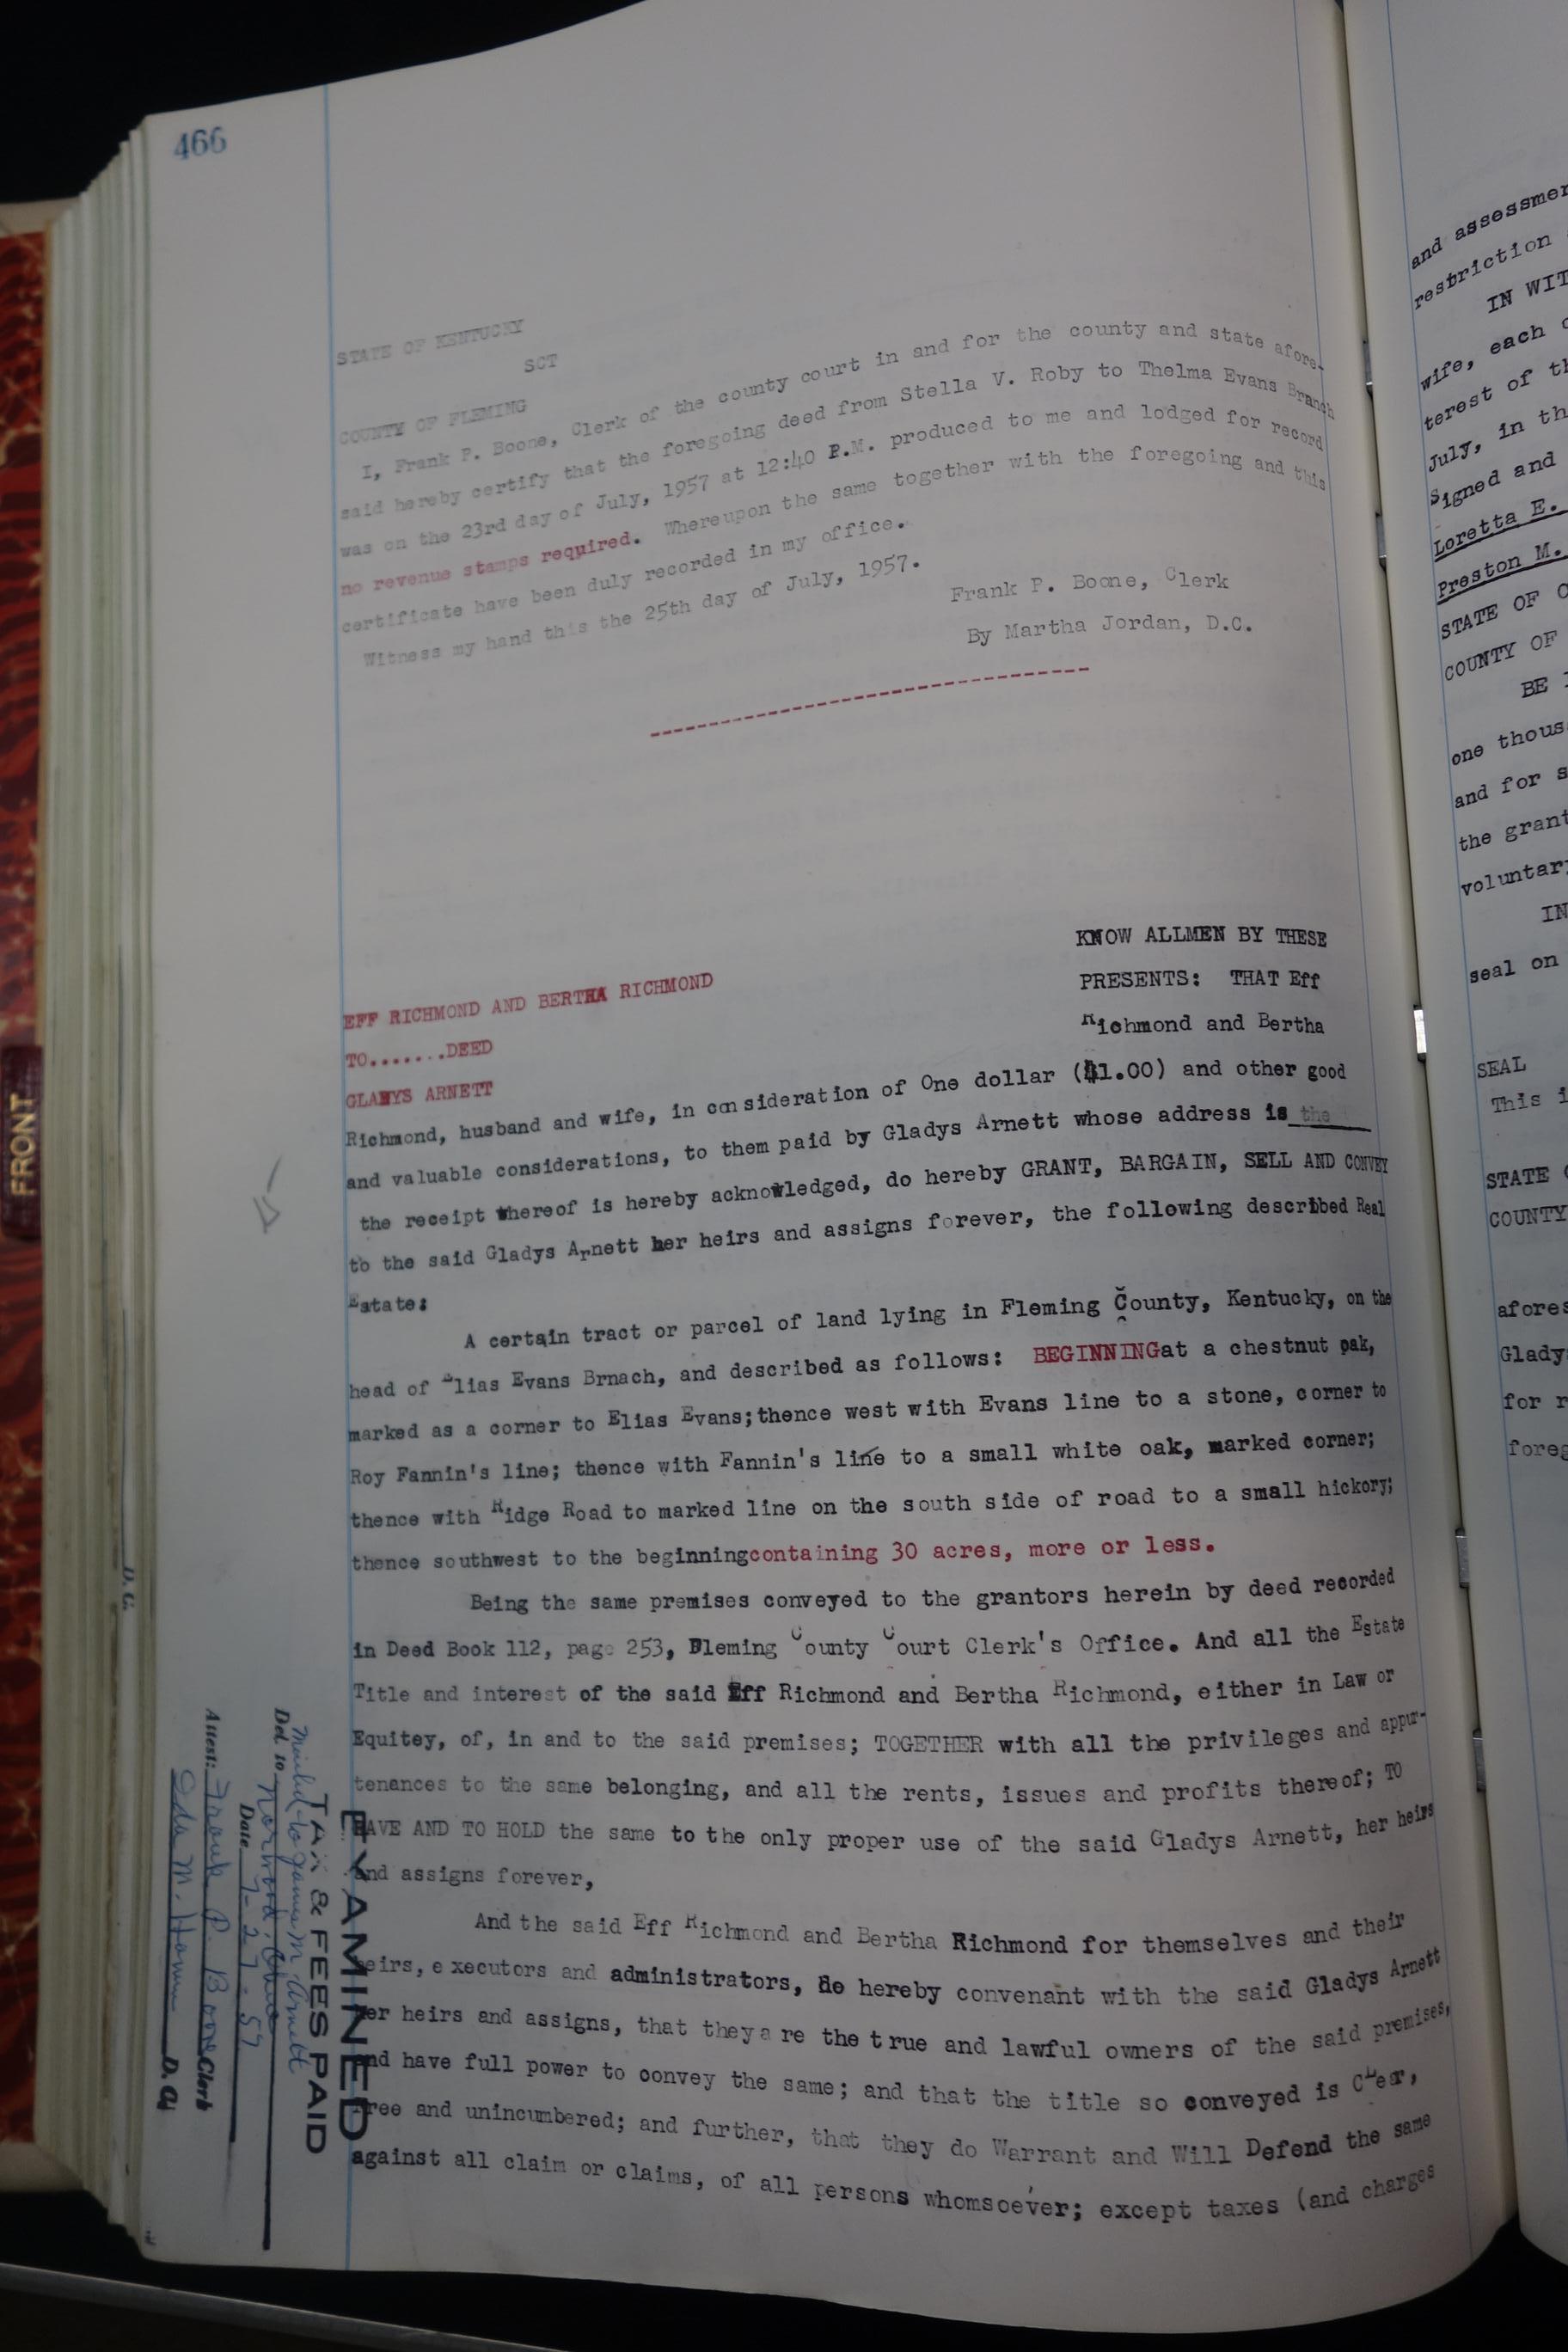 466
STATE OF KENTUCKY
SCT
COUNTY OF FLEMING
I, Frank P. Boone, Clerk of the county court in and for the county and state afore-
said hereby certify that the foregoing deed from Stella V. Roby to Thelma Evans Branch
was on the 23rd day of July, 1957 at 12:40 P.M. produced to me and lodged for record
no revenue stamps required. Whereupon the same together with the foregoing and this
certificate have been duly recorded in my office.
Witness my hand this the 25th day of July, 1957.
Frank P. Boone, Clerk
By Martha Jordan, D.C.
KNOW ALLMEN BY THESE
PRESENTS: THAT Eff
Richmond and Bertha
EFF RICHMOND AND BERTHA RICHMOND
TO.......DEED
GLADYS ARNETT
Richmond, husband and wife, in consideration of One dollar ($1.00) and other good
and valuable considerations, to them paid by Gladys Arnett whose address is the
the receipt whereof is hereby acknowledged, do hereby GRANT, BARGAIN, SELL AND CONVEY
to the said Gladys Arnett her heirs and assigns forever, the following described Real
Estate:
A certain tract or parcel of land lying in Fleming County, Kentucky, on the
head of Elias Evans Brnach, and described as follows: BEGINNINGat a chestnut oak,
marked as a corner to Elias Evans;thence west with Evans line to a stone, corner to
Roy Fannin's line; thence with Fannin's line to a small white oak, marked corner;
thence with Ridge Road to marked line on the south side of road to a small hickory;
thence southwest to the beginningcontaining 30 acres, more or less.
Being the same premises conveyed to the grantors herein by deed recorded
in Deed Book 112, page 253, Fleming County Court Clerk's Office. And all the Estate
Title and interest of the said Eff Richmond and Bertha Richmond, either in Law or
Equitey, of, in and to the said premises; TOGETHER with all the privileges and appur-
tenances to the same belonging, and all the rents, issues and profits thereof; TO
HAVE AND TO HOLD the same to the only proper use of the said Gladys Arnett, her heirs
and assigns forever,
And the said Eff Richmond and Bertha Richmond for themselves and their
heirs, executors and administrators, do hereby convenant with the said Gladys Arnett
her heirs and assigns, that they are the true and lawful owners of the said premises,
and have full power to convey the same; and that the title so conveyed is Clear,
Free and unincumbered; and further, that they do Warrant and Will Defend the same
against all claim or claims, of all persons whomsoever; except taxes (and charges
EXAMINED
TAX & FEES PAID
Mailed to James M. Arnett
Del to Norwood, Ohio
Date 7-27-57
Attest: Frank P. Boone Clerk
Ida M. D. C.
D. C.
FRONT
and assessmen
restriction
IN WIT
wife, each o
terest of th
July, in th
Signed and
Loretta E.
Preston M.
STATE OF O
COUNTY OF
BE I
one thous
and for s
the grant
voluntary
IN
seal on
SEAL
This i
STATE
COUNTY
afores
Gladys
for r
foreg